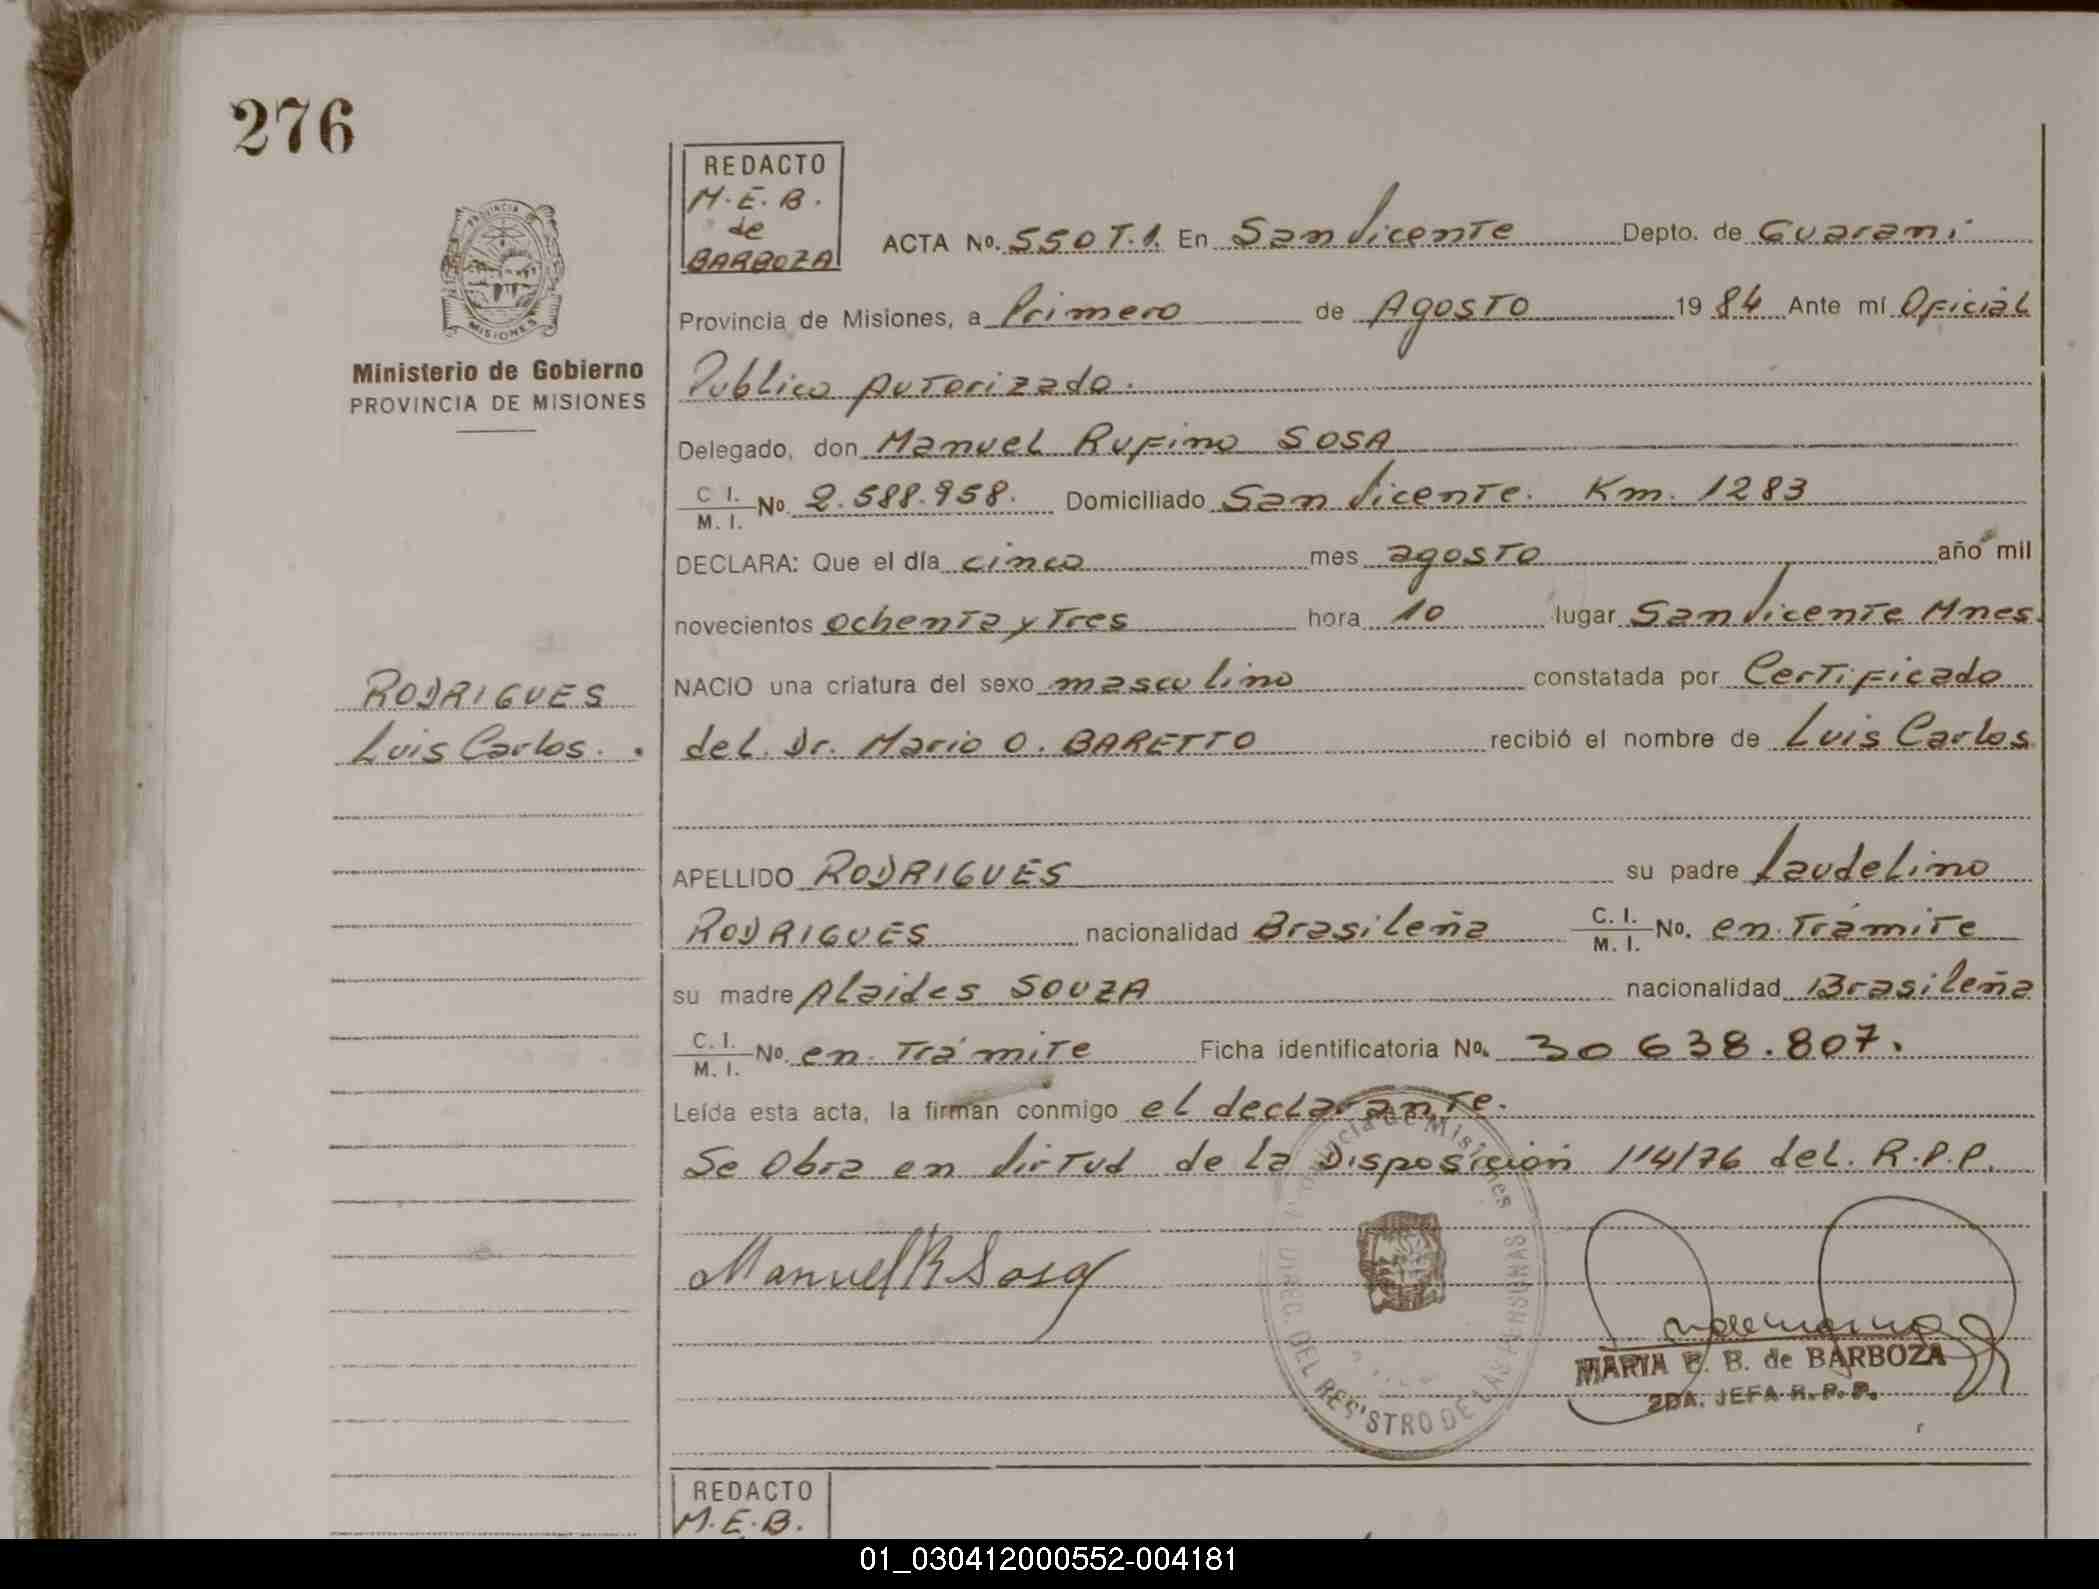 276
REDACTO
M.E.B.
de
BARBOZA
ACTA No. 550 T.1. En San Vicente Depto. de Guarani
PROVINCIA DE
MISIONES
Provincia de Misiones, a Primero de Agosto 1984 Ante mí Oficial
Ministerio de Gobierno
PROVINCIA DE MISIONES
Publico Autorizado.
Delegado, don Manuel Rufino SOSA
C I. / M. I. No. 2.588.958. Domiciliado San Vicente. Km. 1283
DECLARA: Que el día cinco mes agosto año mil
novecientos ochenta y Tres hora 10 lugar San Vicente Mnes.
RODRIGUES
Luis Carlos.
NACIO una criatura del sexo masculino constatada por Certificado
del. Dr. Mario O. BARETTO recibió el nombre de Luis Carlos
APELLIDO RODRIGUES su padre Laudelino
RODRIGUES nacionalidad Brasileña C. I. / M. I. No. en Trámite
su madre Alaides SOUZA nacionalidad Brasileña
C. I. / M. I. No. en Trámite Ficha identificatoria No. 30 638.807.
Leída esta acta, la firman conmigo el declarante.
Se Obra en Virtud de la Disposición 114/76 del. R.P.P.
Provincia de Misiones
DIREC. DEL REGISTRO DE LAS PERSONAS
Manuel R Sosa
MARIA E. B. de BARBOZA
2DA. JEFA R. P. P.
REDACTO
M.E.B.
01_030412000552-004181